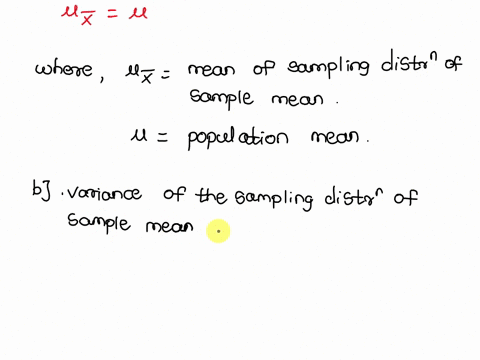 μx̄ = μ
where, μx̄ = mean of sampling distrⁿ of
sample mean.
μ = population mean.
b]. variance of the sampling distrⁿ of
sample mean